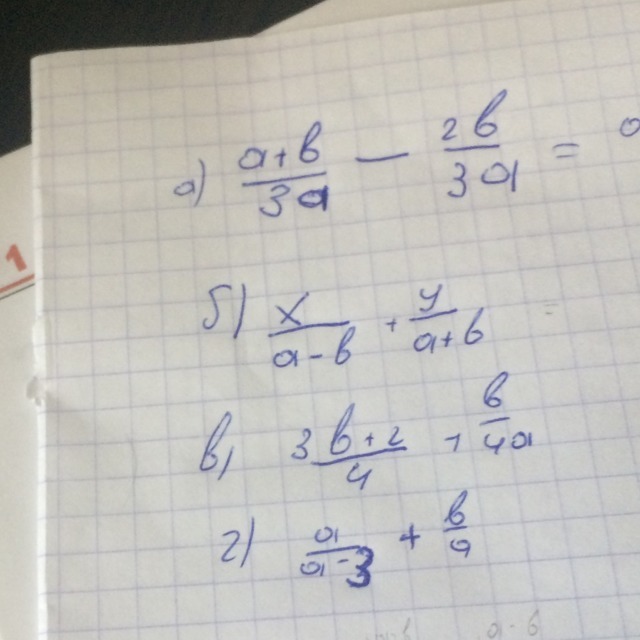 а) (a+b)/(3a) — (2b)/(3a) = a
1
б) x/(a-b) + y/(a+b) =
в) (3b+2)/4 + b/(4a)
г) a/(a-3) + b/a